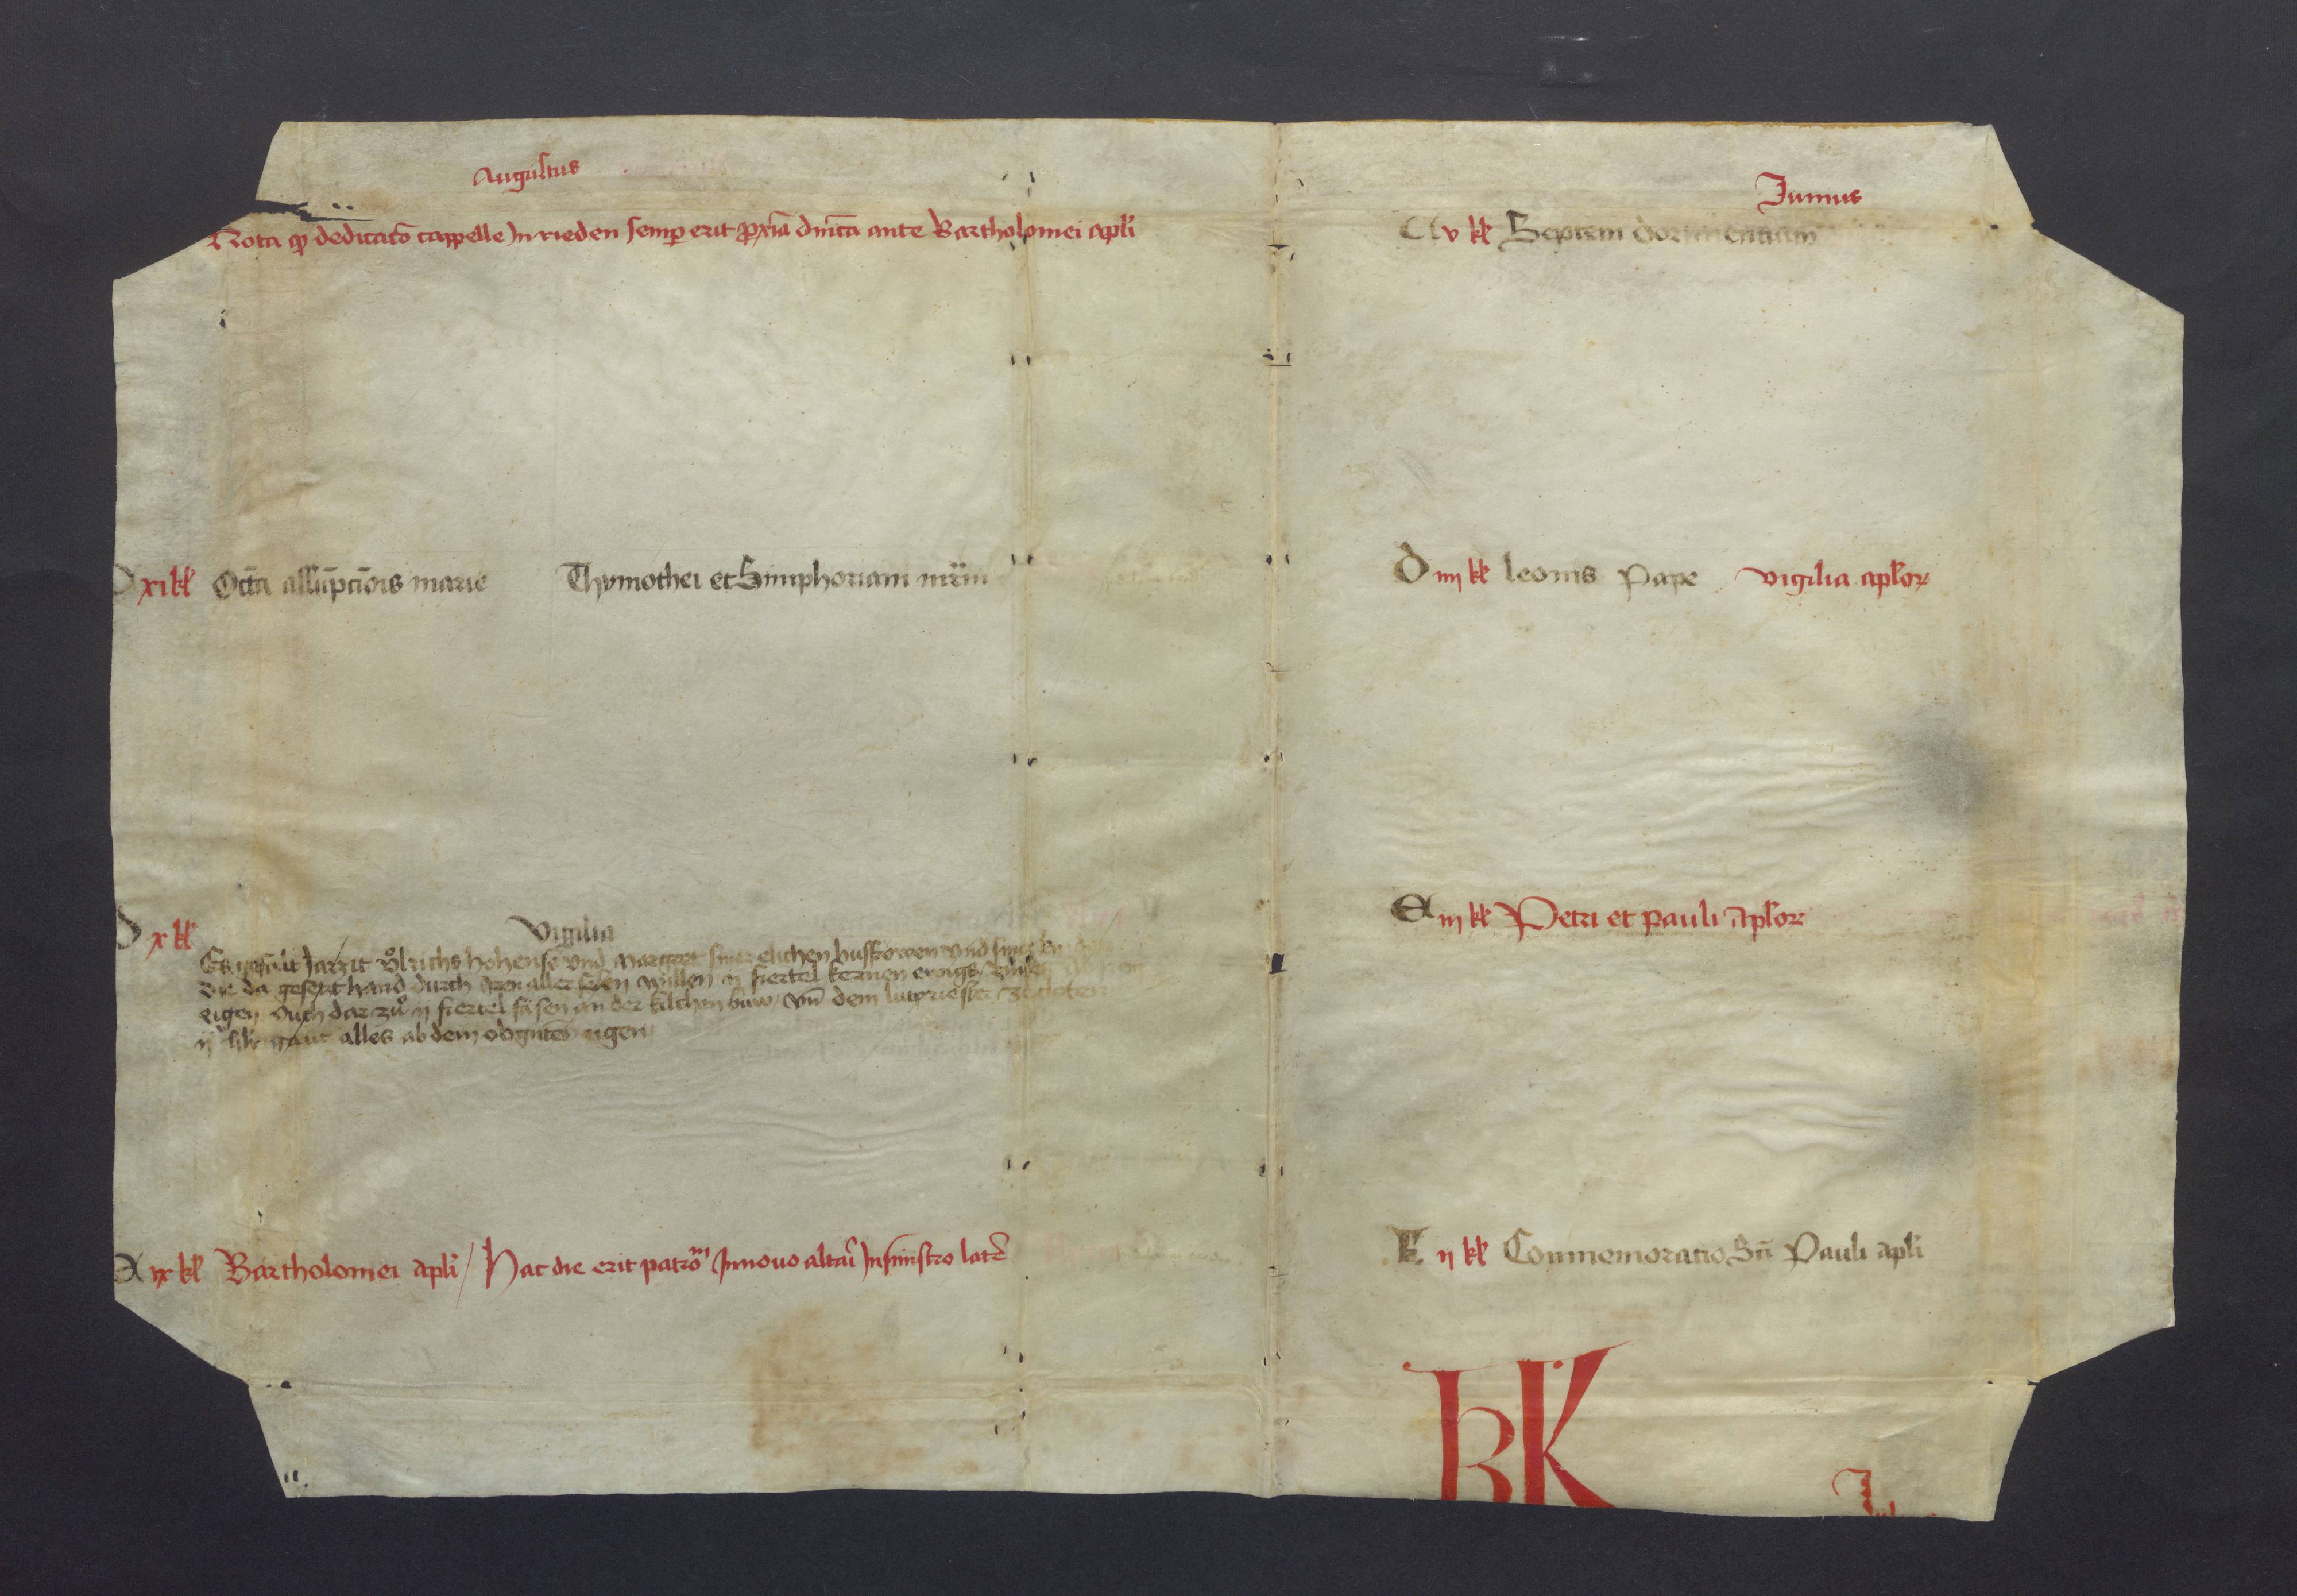 Augustus
Nota qp dedicatō cappelle In rieden semp erit pxīa dnīca ante Bartholomei apli
xi kl Octā assūpcōis marie Thymothei et Simphoriani mr̄m
D x kl Vigilia
Es gefalt Jarzit Vͦlrichs hohense vnd Margret siner elichen husfrowen vnd siner
die da gesetzt hand durch Iren aller selen willen ij fiertel kernen ewigs
eigen Ouch dar zuͦ ij fiertel fasen an der kilchen buw / vn̄ dem lutpriester
ij gant alles ab dem obgnten eigen
A ix kl Bartholomei apli / Hac die erit patrō In nouo altari In sinistro late
Iunius
C v kl Septem dormentium
D iiij kl leonis Pape vigilia aplor
E iij kl Petri et Pauli Aplor
F ij kl Commemoratio Sci Pauli apli
KL